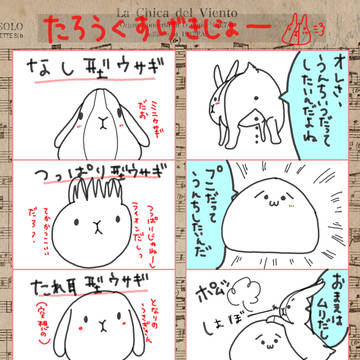 La Chica del Viento
SOLO
たろうぐすげるじょー
=3
なし型ウサギ
ミニウサギ
だお
オレさ、
うんちぃだって
したいんだよね
つっぱり型ウサギ
つっぱりじゃねーし
ライオンだし
てかかっこいい
だろ？
プーだって
うんちしたいんだ
たれ耳型ウサギ
となりの
うさぎさん
(空想の)
ポムッ
しょぼ
おまえは
ムリだし